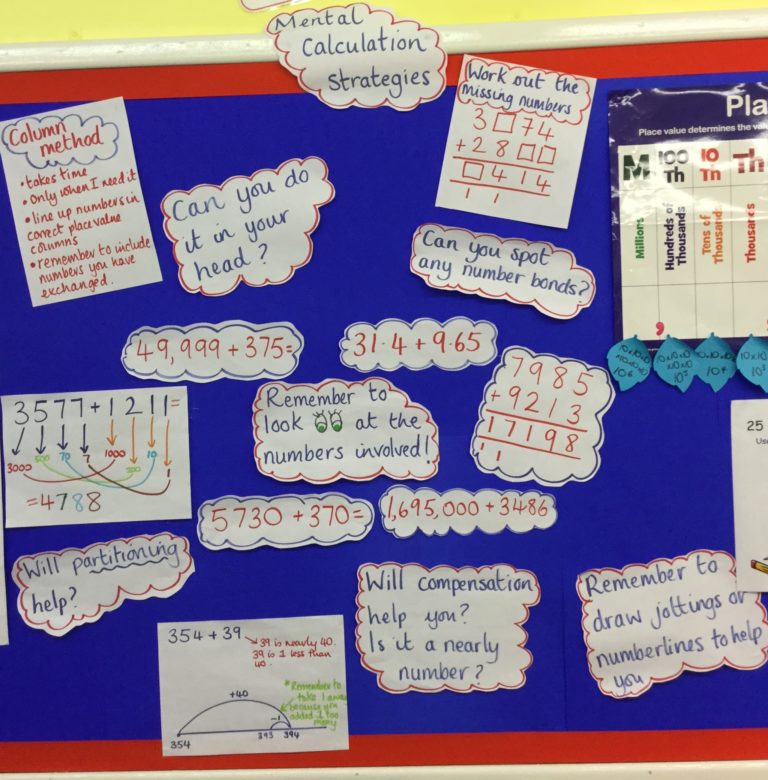 Mental
Calculation
Strategies
Column
method
• takes time
• Only when I need it
• line up numbers in
correct place value
columns
• remember to include
numbers you have
exchanged.
Can you do
it in your
head?
Work out the
missing numbers
3 □ 7 4
+ 2 8 □ □
□ 4 1 4
1 1
Can you spot
any number bonds?
Pla
Place value determines the val
M
100 Th
10 Th
Th
Millions
Hundreds of Thousands
Tens of Thousands
Thousands
,
49,999 + 375=
31.4 + 9.65
3577+1211=
3000 500 70 7 1000 200 10 1
=4788
Remember to
look at the
numbers involved!
7985
+ 9213
17198
1 1
5730 + 370=
1,695,000 + 3486
25
Us
Will partitioning
help?
Will compensation
help you?
Is it a nearly
number?
Remember to
draw jottings or
numberlines to help
you
354 + 39
39 is nearly 40.
39 is 1 less than
40.
+40
* Remember to
take 1 away
because you
added 1 too
many
-1
354 393 394